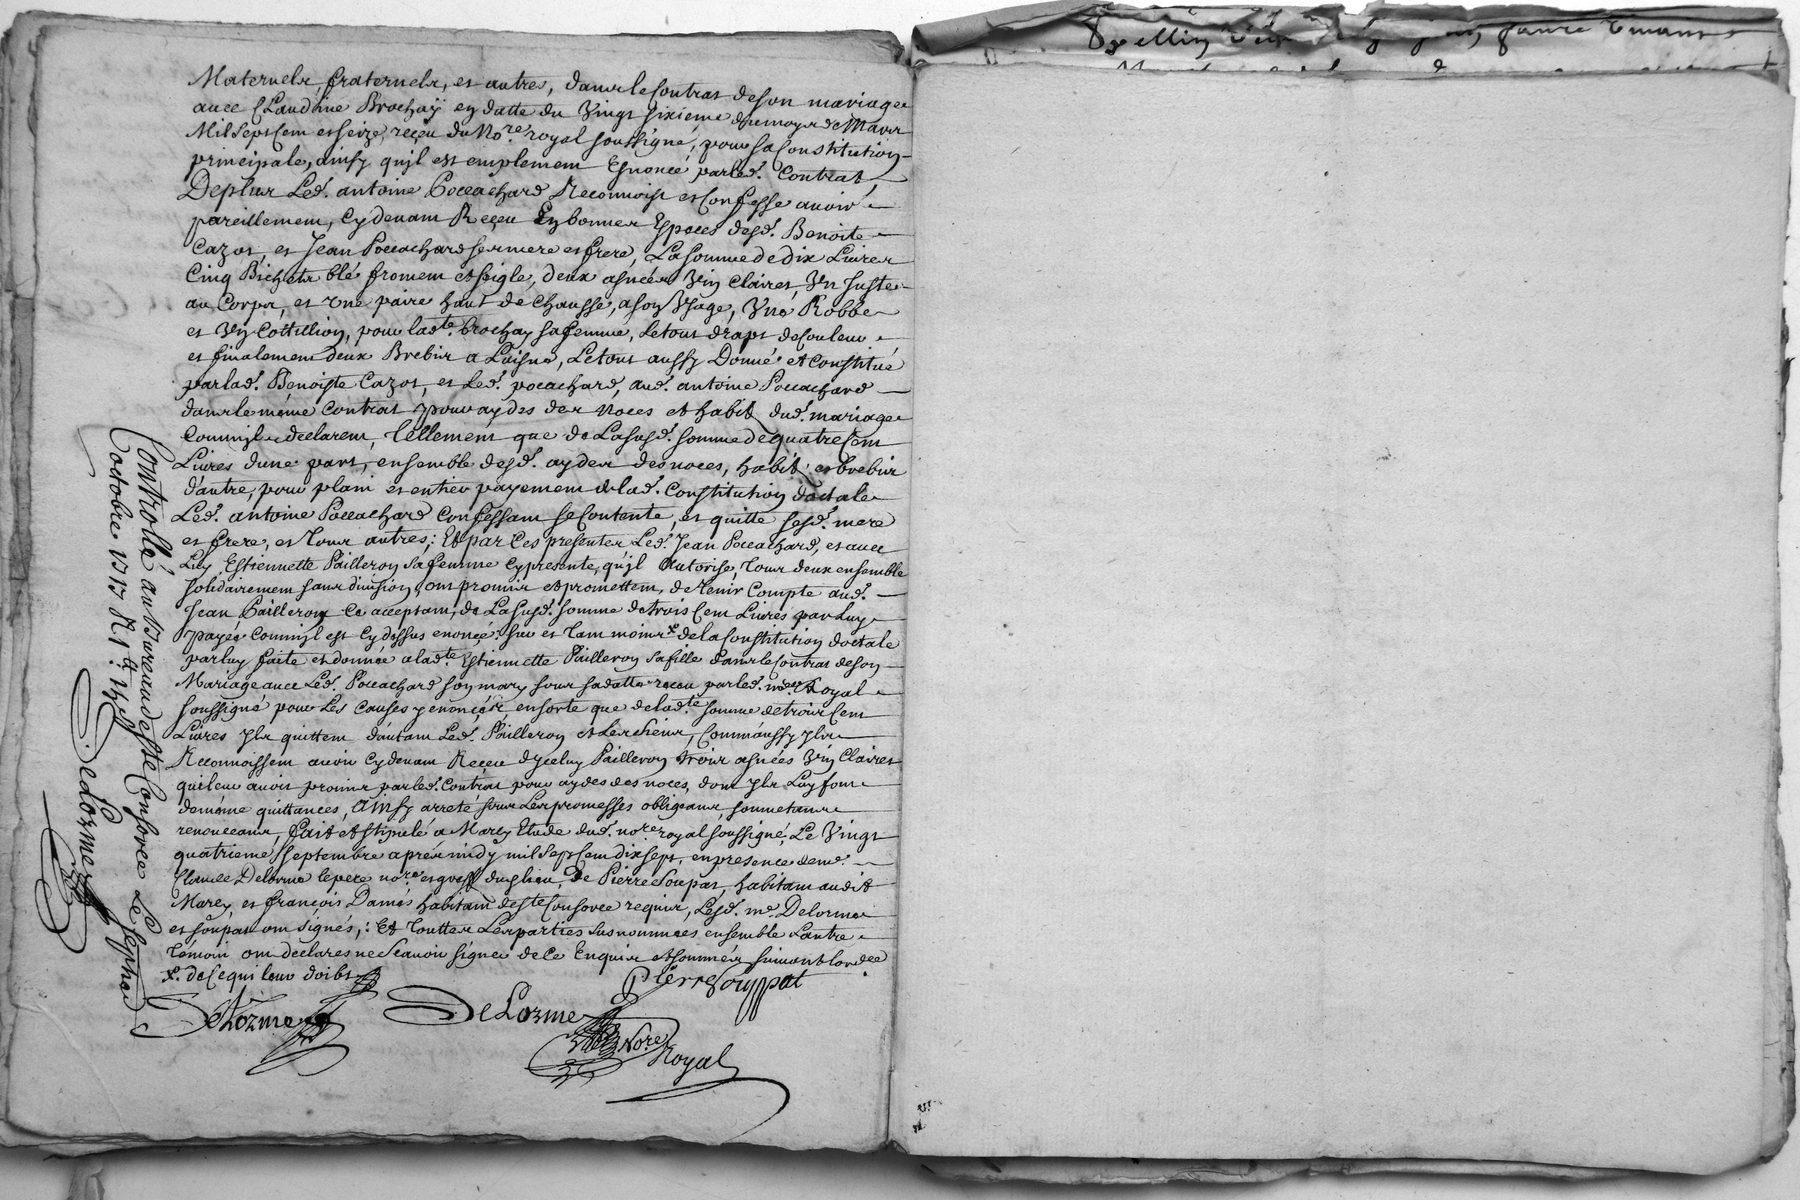 Maternels, fraternels, et autres, dans le Contrat de son mariage
avec Claudine Brochay en datte du Vingt sixieme du moys de Mars
Mil Sept Cent et seize, reçeu du No.re royal soussigné, pour sa Constitution
principale, ainsy quil est emplement Enoncé par led. Contrat,
De plus Led. antoine Poccachard Reconnoist et Confesse avoir
pareillement, Cy devant Reçeu En bonnes Especes desd. Benoite
Cazot, et Jean Poccachard ses mere et frere, La somme de dix Livres
Cinq Bichets blé froment et seigle, deux asnées Vin Clairet, Un Juste
au Corps, et Une paire haut de Chausse, a son Usage, Une Robbe
et Un Cottillion, pour lad.te Brochay sa femme, le tout draps de Couleur
et finalement deux Brebis a Laisne, Le tout aussy Donné et Constitué
par lad. Benoiste Cazot, et Led. pocachard, aud. antoine Poccachard
dans le même Contrat pour aydes des noces et habit dud. mariage
Comm'ils declarent, Tellement que de La susd. somme de quatre Cent
Livres dune part, ensemble desd. aydes des noces, habit et brebis
d'autre, pour plain et entier payement de lad. Constitution doctale
Led. antoine Poccachard Confessant se Contente, et quitte sesd. mere
et frere, et Tous autres; Et par Ces presentes Led. Jean Poccachard, et avec
Luy Estiennette Pailleron sa femme Cy presente, qu'jl Autorise, Tous deux ensemble
solidairement sans division, ont promis et promettent, de Tenir Compte aud.
Jean Pailleron Ce acceptant, de La susd. somme de trois Cent Livres par Luy
payée Comm'jl est Cy dessus enoncé sur et Tant moins x de la Constitution doctale
par luy faite et donnée a lad.te Estiennette Pailleron sa fille dans le Contrat de son
Mariage avec Led. Poccachard son mary sous sa datte receu par led. no.re Royal
soussigné pour Les Causes y enoncées, en sorte que de lad.te somme de trois Cent
Livres jls quittent d'autant Led. Pailleron et Les siens, Comm'aussy jls
Reconnoissent avoir Cy devant Reçeu d'yceluy Pailleron trois asnées Vin Clairet
qui leur avoit promis par led. Contrat pour aydes des noces, dont jls Luy font
de même quittances, Ainsy arreté sous Les promesses obligeans, soumetans
renonceans, fait et stipulé a Marcy Etude dud. no.re royal soussigné, Le Vingt
quatrieme septembre après midy mil Sept Cent dix sept, en presence de m.e
Claude Delorme le pere no.re et greff. dud. lieu, De Pierre Soupat, habitant audit
Marcy, et françois Damés habitant de st. Consorce requis, Lesd. m.e Delorme
et soupat ont signés; Et Touttes Les parties susnommées ensemble L'autre
Témoin ont declares ne Scavoir signer de Ce Enquis et sommés suivant lordce
x. de Ce qui leur doibt
Pierre Souppat
DeLorme
DeLorme
No.re
Royal
Controllé au Bureau de st. Consorce Le sept
octobre 1717 R
Delorme